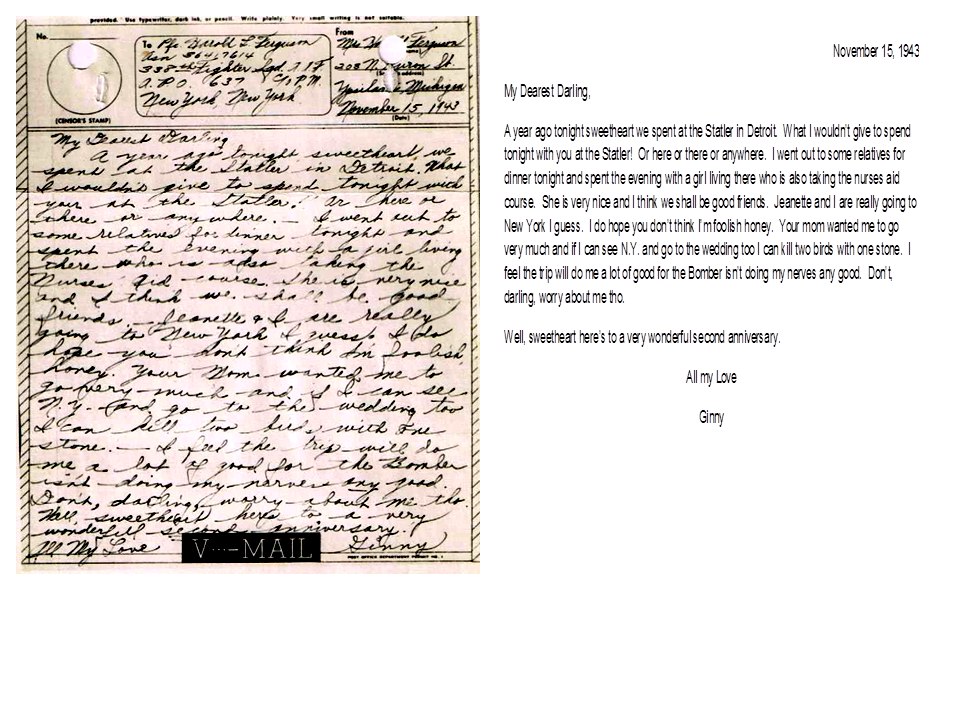 provided. Use typewriter, dark ink, or pencil. Write plainly. Very small writing is not suitable.
No.
(CENSOR'S STAMP)
To Pfc. Burrell L. Ferguson
Asn 36417614
338th Fighter Sqd. A.P.
A.P.O. 637 C/o P.M.
New York New York
From
Mrs Ferguson
208 N. Huron St.
Michigan
November 15, 1943
(Date)
My Dearest Darling
A year ago tonight sweetheart, we
spent at the Statler in Detroit. What
I wouldn't give to spend tonight with
you at the Statler! Or here or
there or anywhere. — I went out to
some relatives for dinner tonight and
spent the evening with a girl living
there who is also taking the
Nurses Aid course. She is very nice
and I think we shall be good
friends. — Jeanette & I are really
going to New York I guess. I do
hope you don't think I'm foolish
honey. Your Mom wanted me to
go very much and if I can see
N.Y. (and go to the) wedding too
I can kill two birds with one
stone. — I feel the trip will do
me a lot of good for the Bomber
isn't doing my nerves any good.
Don't, darling, worry about me tho.
Well, sweetheart here's to a very
wonderful second anniversary.
All My Love
Ginny
V···—MAIL
November 15, 1943
My Dearest Darling,
A year ago tonight sweetheart we spent at the Statler in Detroit. What I wouldn't give to spend
tonight with you at the Statler! Or here or there or anywhere. I went out to some relatives for
dinner tonight and spent the evening with a girl living there who is also taking the nurses aid
course. She is very nice and I think we shall be good friends. Jeanette and I are really going to
New York I guess. I do hope you don't think I'm foolish honey. Your mom wanted me to go
very much and if I can see N.Y. and go to the wedding too I can kill two birds with one stone. I
feel the trip will do me a lot of good for the Bomber isn't doing my nerves any good. Don't,
darling, worry about me tho.
Well, sweetheart here's to a very wonderful second anniversary.
All my Love
Ginny